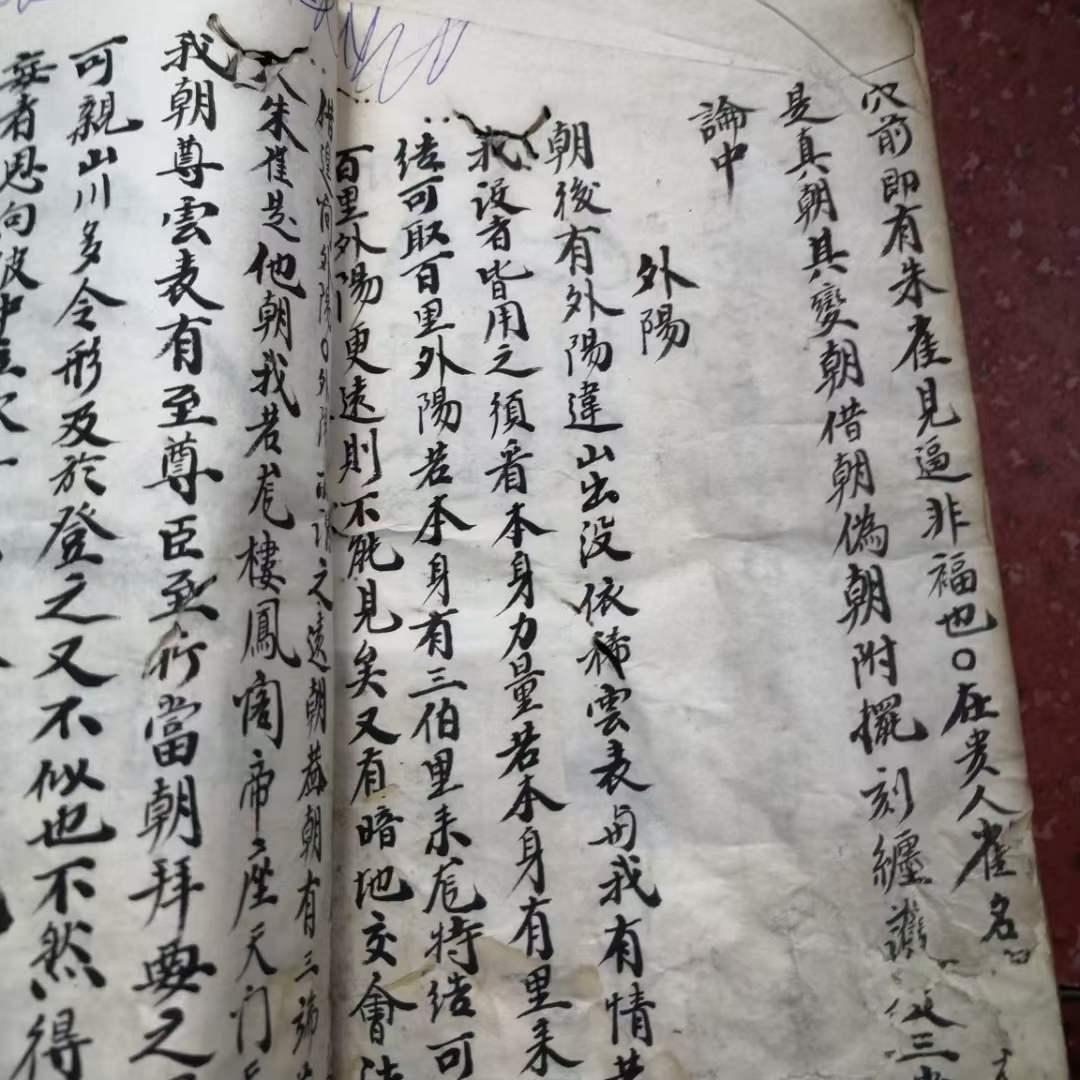 穴前即有朱雀見逼非福也○在贵人雀名
是真朝其變朝借朝偽朝附擺刻纏護三
論中
外陽
朝後有外陽違山出没依稀雲表与我有情若
我没者皆用之須看本身力量若本身有里来
结可取百里外陽若本身有三伯里来庬特结可
百里外陽更遠則不能見矣又有暗地交會
之遠朝盖朝有三
朱雀是他朝我若庬樓鳳阁帝座天门
我朝尊雲表有至尊臣至行當朝拜要之
可親山川多令形及於登之又不似也不然得
者恩向彼中